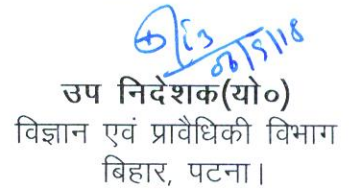 06/9/18
उप निदेशक(यो०)
विज्ञान एवं प्रावैधिकी विभाग
बिहार, पटना।